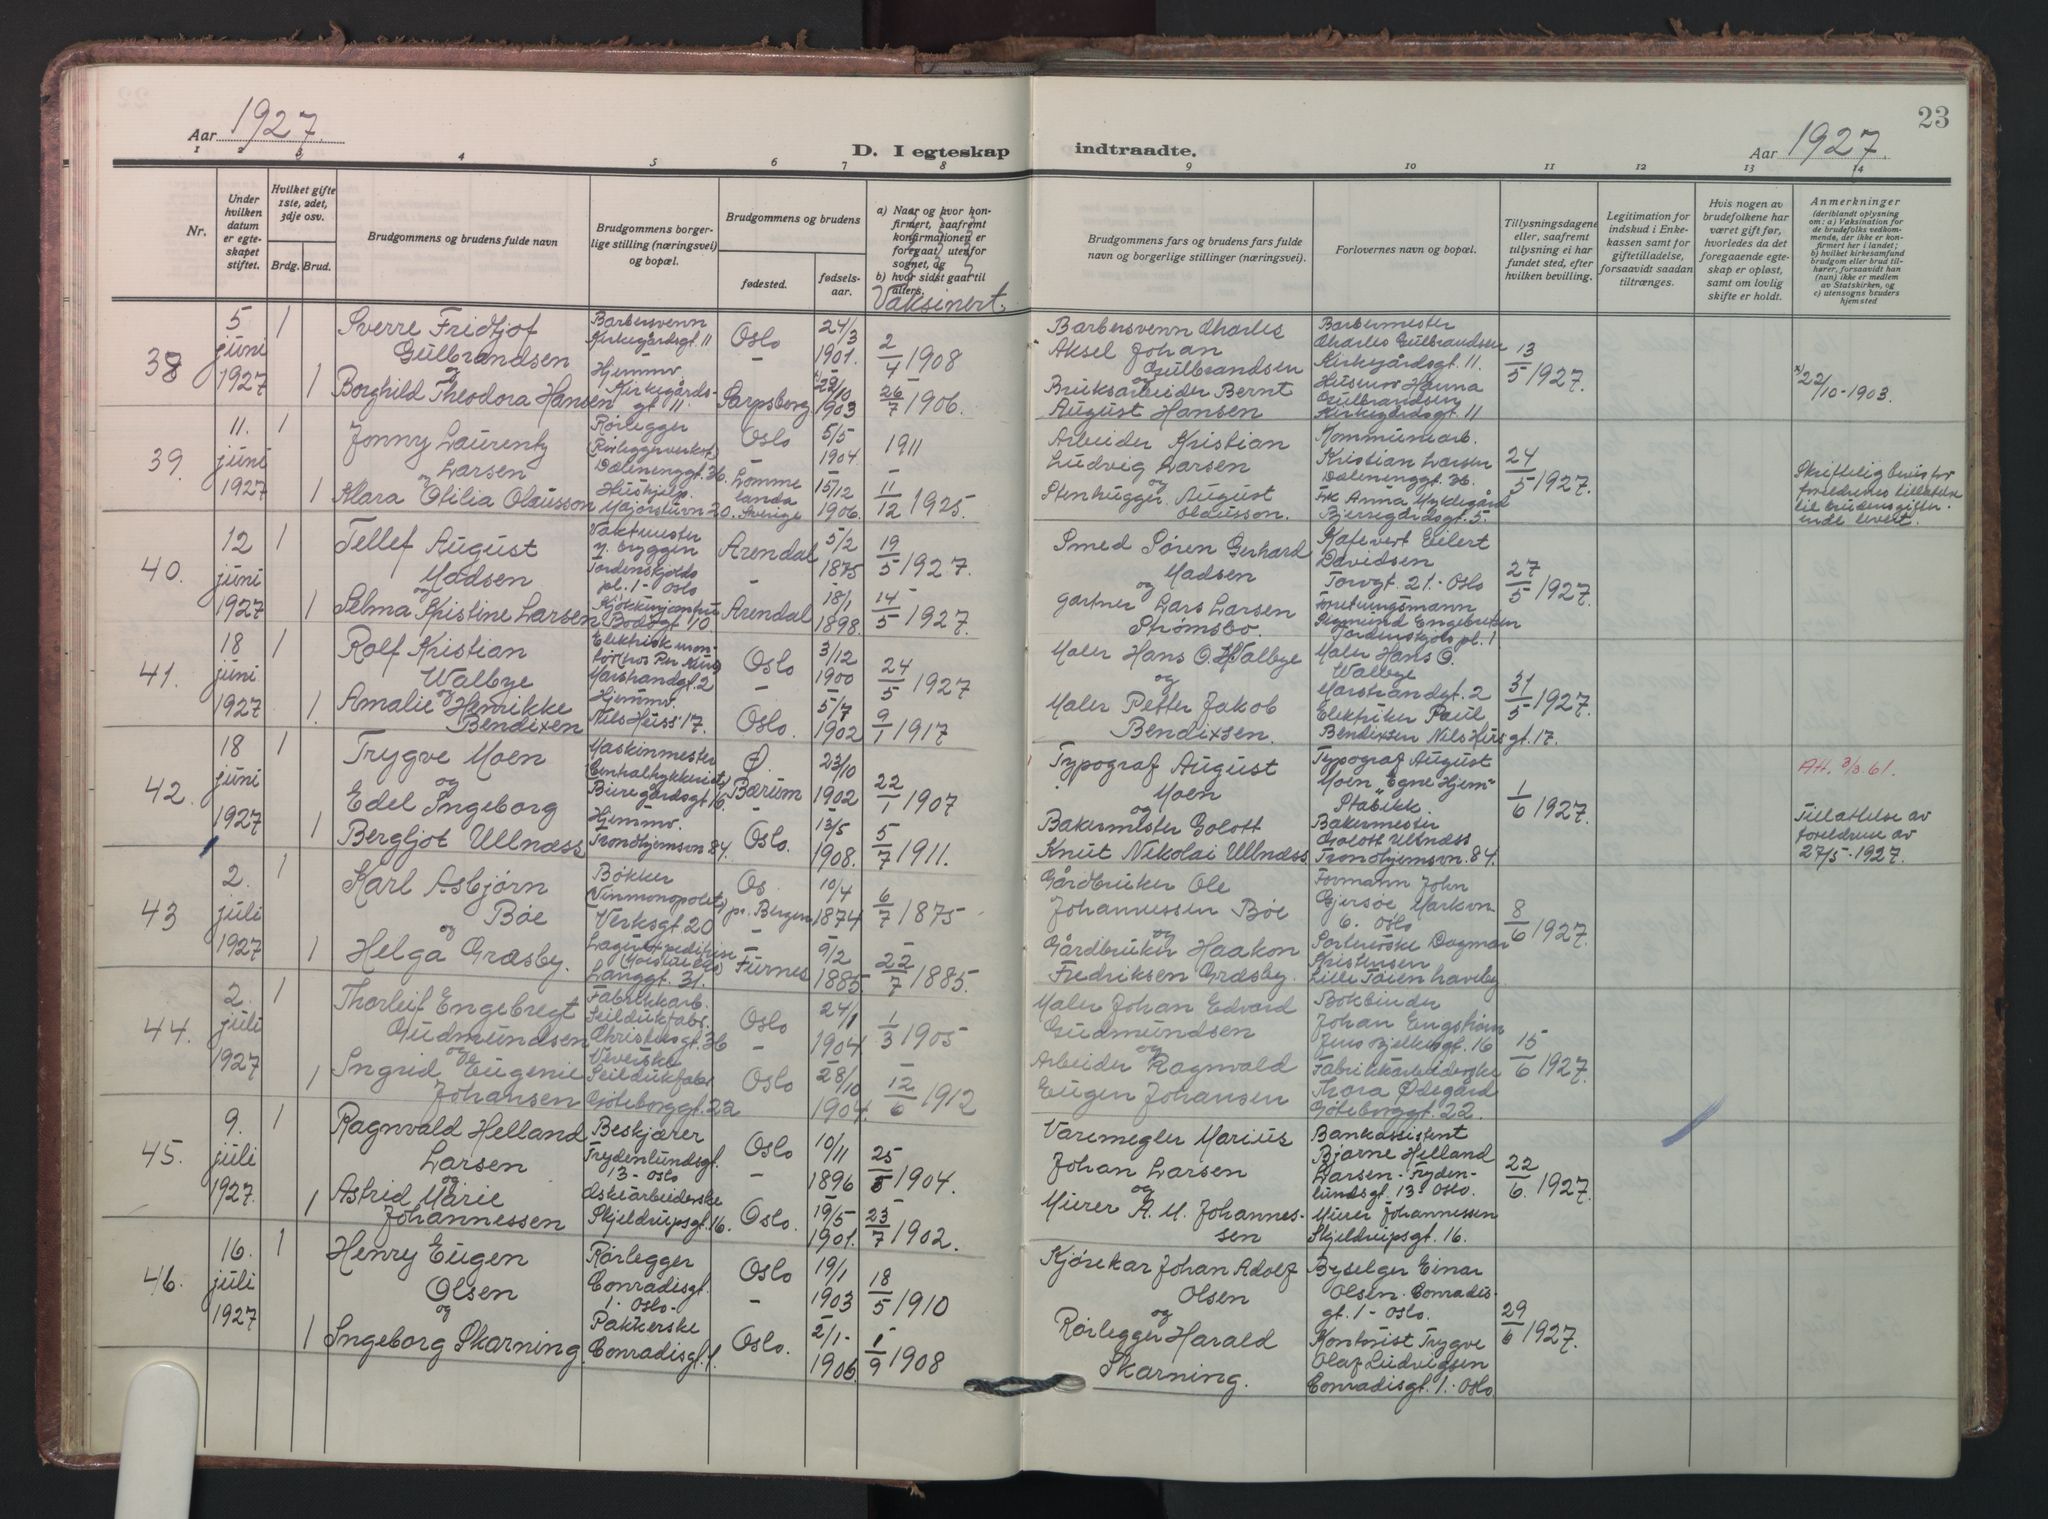 22
Aar 1927.
D. I egteskap
1 2 3 4 5 6 7 8
Nr.
Under hvilken datum er egteskapet stiftet.
Hvilket gifte 1ste, 2det, 3dje osv.
Brdg. Brud.
Brudgommens og brudens fulde navn
Brudgommens borgerlige stilling (næringsvei) og bopæl.
Brudgommens og brudens
fødested. fødselsaar.
a) Naar og hvor konfirmert, saafremt konfirmationen er foregaat utenfor sognet, og
b) hvor sidst gaar til alters.
Vaksinert.
38
5 juni 1927
1
Sverre Fridtjof
Gulbrandsen
og
1 Borghild Theodora Hansen
Barbersvenn
Kirkegårdsgt. 11
Hjemmv.
Kirkegårds-
gt. 11.
Oslo
Sarpsborg
24/3 1901.
x) 22/10 1903
2/4 1908
26/7 1906.
39.
11. juni 1927
1
Jonny Laurentz
Larsen
og
1 Klara Otilia Olausson
Rørlegger
(Rørleggerverkst)
Dælenenggt. 36.
Hushjelp.
Majorstuvn 20.
Oslo
Lommelanda
Sverige
5/5 1904.
15/12 1906.
1911
11/12 1925.
40.
12 juni 1927
1
Tellef August
Madsen
og
1 Selma Kristine Larsen
Vaktmester
v. bryggen
Tordenskjolds
pl. 1 - Oslo
Bodsgt 10.
Arendal
Arendal
5/2 1875
18/1 1898.
19/5 1927.
14/5 1927.
41.
18 juni 1927
1
Rolf Kristian
Walbye
og
1. Amalie Henrikke
Bendixen
Elektrisk mon-
tør
Marstrandgt. 2
Hjemmv.
Nils Huss' 17.
Oslo
Oslo.
3/12 1900
5/7 1902
24/5 1927
9/1 1917
42.
18 juni 1927
1
Trygve Moen
og
Edel Ingeborg
1 Bergljot Ullnæss
Maskinmester
(Centraltrykkeriet)
Bjerregårdsgt. 16.
Hjemmv.
Trondhjemsvn 84.
Ø. Bærum
Oslo.
23/10 1902
13/5 1908.
22/1 1907
5/7 1911.
43
2. juli 1927
1
Karl Asbjørn
Bøe
og
1 Helga Græsby.
Bøkker
(Vinmonopolet)
Verksgt 20
Langgt. 31.
Os
pr. Bergen
Furnes
10/4 1874
9/2 1885
6/7 1875
22/7 1885.
44.
2. juli 1927
1
Thorleif Engebregt
Gudmundsen
og
1 Ingrid Eugenie
Johansen
Fabrikkarb.
Seildukfabr.
Christiesgt. 36
Veverske
Seildukfabr
Gøteborggt. 22
Oslo
Oslo
24/1 1904
28/10 1904.
1/3 1905
12/6 1912
45.
9. juli 1927.
1
Ragnvald Helland
Larsen
og
1 Astrid Marie
Johannessen
Beskjærer
Frydenlundsgt.
13 - Oslo
Eskearbeiderske
Skjeldrupsgt. 16.
Oslo
Oslo.
10/11 1896
19/5 1901.
25/5 1904.
23/7 1902.
46.
16. juli 1927
1
Henry Eugen
Olsen
og
1 Ingeborg Skarning.
Rørlegger
Conradisgt.
1. Oslo -
Pakkerske
Conradisgt. 1.
Oslo
Oslo.
19/1 1903
2/1 - 1906.
18/5 1910
1/9 1908
23
indtraadte.
Aar 1927.
9 10 11 12 13 14
Brudgommens fars og brudens fars fulde navn og borgerlige stillinger (næringsvei).
Forlovernes navn og bopæl.
Tillysningsdagene eller, saafremt tillysning ei har fundet sted, efter hvilken bevilling.
Legitimation for indskud i Enkekassen samt for giftetilladelse, forsaavidt saadan tiltrænges.
Hvis nogen av brudefolkene har været gift før, hvorledes da det foregaaende egteskap er opløst, samt om lovlig skifte er holdt.
Anmerkninger
(deriblandt oplysning om: a) Vaksination for de brudefolks vedkommende, der ikke er konfirmert her i landet; b) hvilket kirkesamfund brudgom eller brud tilhører, forsaavidt han (hun) ikke er medlem av Statskirken, og c) utensogns bruders hjemsted
Barbersvenn Charles
Aksel Johan
Gulbrandsen
og
Bruksarbeider Bernt
August Hansen
Barbermester
Charles Gulbrandsen
Kirkegårdsgt. 11.
Husmor Hanna
Gulbrandsen
Kirkegårdsgt. 11
13/5 1927.
x) 22/10 - 1903.
Arbeider Kristian
Ludvig Larsen
og
Stenhugger August
Olausson.
Kommunearb.
Kristian Larsen
Dælenenggt. 36.
Frk Anna Myklegård
Bjerregårdsgt. 5.
24/5 1927.
Skriftelig bevis for
foreldrenes tillatelse
til brudens gifter-
ende levert.
Smed Søren Gerhard
Madsen
og
gartner Lars Larsen
Strømsbo.
Kafevert Eilert
Davidsen
Torvgt. 21 - Oslo
Forretningsmann
Sigmund Engebretsen
Tordenskjols pl. 1
27/5 1927.
Maler Hans O. Walbye
og
Maler Petter Jakob
Bendixsen.
Maler Hans O.
Walbye
Marstrandgt. 2
Elektriker Paul
Bendixsen Nils Huss gt. 17.
31/5 1927.
Typograf August
Moen
og
Bakermester Golott
Knut Nikolai Ullnæss
Typograf August
Moen „Egne Hjem"
Stabekk
Bakermester
Golott Ullnæss
Trondhjemsvn. 84.
1/6 1927.
AH. 3/3. 61.
Tillatelse av
foreldrene av
27/5 - 1927.
Gårdbruker Ole
Johannessen Bøe
og
Gårdbruker Haakon
Fredriksen Græsby.
Formann John
Gjersøe Markvn
6. Oslo
Dagmar
Kristensen
Lille Tøien haveby
8/6 1927.
Maler Johan Edvard
Gudmundsen
og
Arbeider Ragnvald
Eugen Johansen
Bokbinder
Johan Engstrøm
Jens Bjelkesgt. 16
Fabrikkarbeiderske
Thora Ødegård
Gøteborggt. 22.
15/6 1927.
Varemegler Marius
Johan Larsen
og
Murer A. M. Johannes-
sen
Bankassistent
Bjarne Helland
Larsen - Fryden-
lundsgt. 13 - Oslo.
Murer Johannessen
Skjeldrupsgt. 16.
22/6. 1927.
Kjørekar Johan Adolf
Olsen
og
Rørlegger Harald
Skarning.
Byselger Einar
Olsen. Conradis-
gt. 1 - Oslo.
Kontorist Trygve
Olaf Ludvigsen
Conradisgt. 1. - Oslo
29/6 1927.